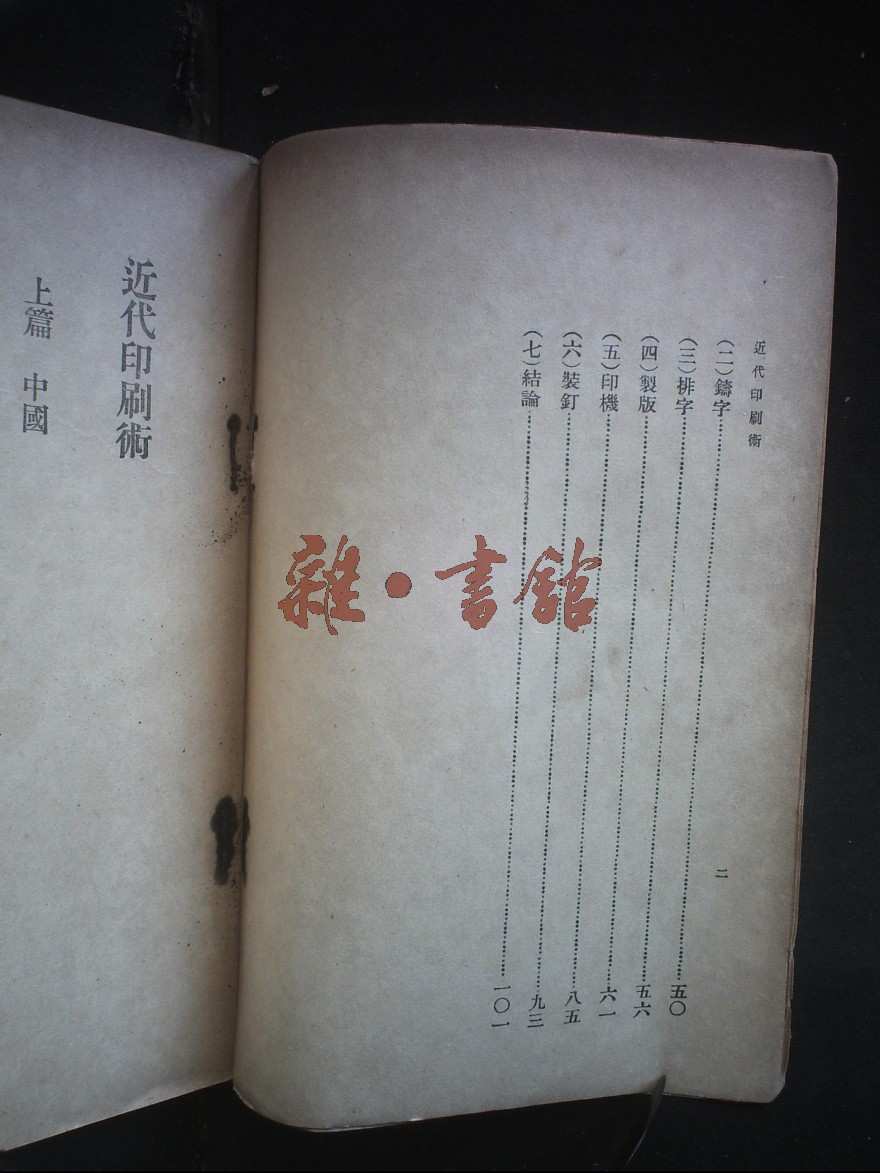 近代印刷術
(二)鑄字……五〇
(三)排字……五六
(四)製版……六一
(五)印機……八五
(六)裝訂……九三
(七)結論……一〇一
二
近代印刷術
上篇 中國
雜·書館